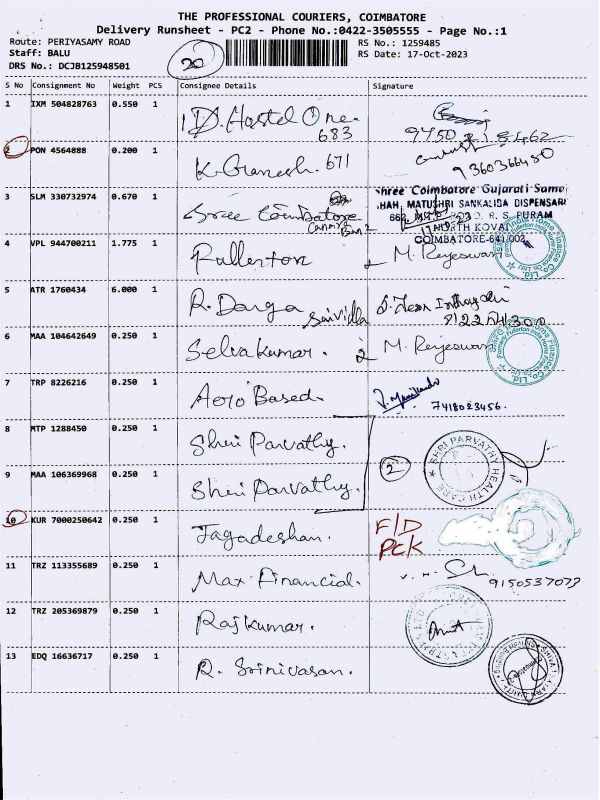 THE PROFESSIONAL COURIERS, COIMBATORE
Delivery Runsheet - PC2 - Phone No.:0422-3505555 - Page No.:1
Route: PERIYASAMY ROAD RS No.: 1259485
Staff: BALU 20 RS Date: 17-Oct-2023
DRS No.: DCJB125948501
S No Consignment No Weight PCS Consignee Details Signature
1 IXM 504828763 0.550 1 D. Hostel One
683
2 PON 4564888 0.200 1 K. Ganesh. 671
9360366450
3 SLM 330732974 0.670 1 Sree Coimbatore
Shree Coimbatore Gujarati Samaj
SHAH MATUSHRI SANKALIBA DISPENSARY
R. S. PURAM
NORTH KOVAI
COIMBATORE-641 002
4 VPL 944700211 1.775 1 Fullerton 2 M. Reyeswari
5 ATR 1760434 6.000 1 R. Darga Saividla
6 MAA 104642649 0.250 1 Selvakumar. 2 M. Reyeswari
7 TRP 8226216 0.250 1 Aero Based.
7418023456.
8 MTP 1288450 0.250 1 Shri Parvathy.
2 SHRI PARVATHY HEALTH CARE
9 MAA 106369968 0.250 1 Shri Parvathy.
10 KUR 7000250642 0.250 1 Jagadeshan. F/D
PCK
11 TRZ 113355689 0.250 1 Max Financial.
9150537073
12 TRZ 205369879 0.250 1 Rajkumar.
13 EDQ 16636717 0.250 1 R. Srinivasan.